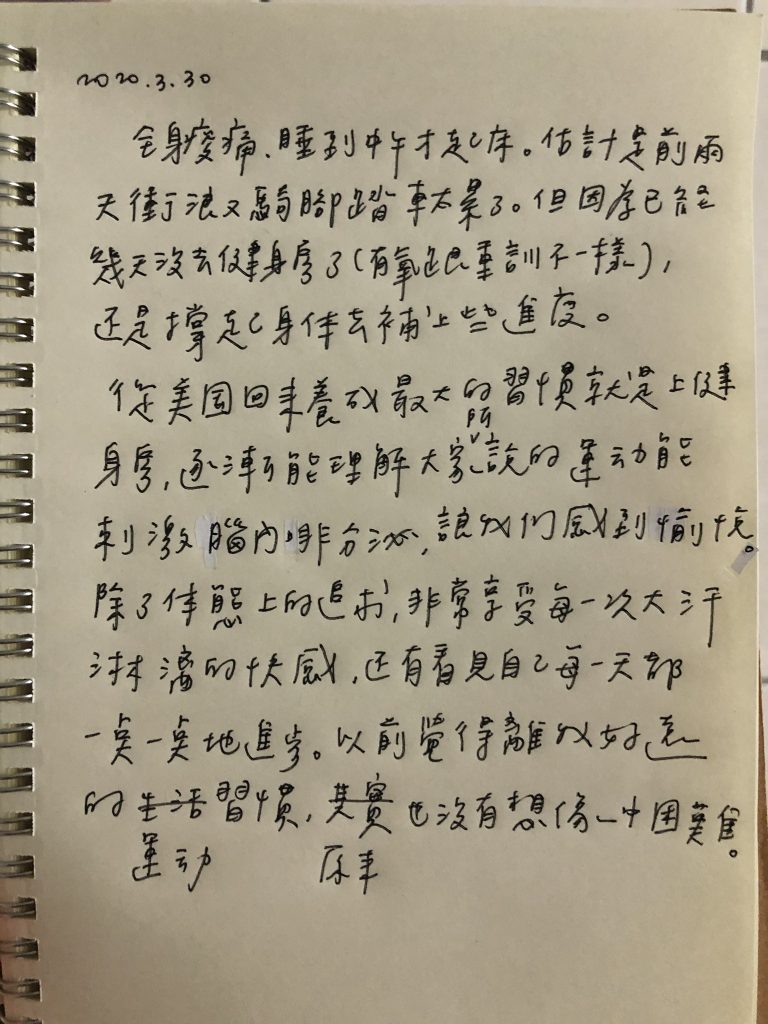 2020.3.30
全身痠痛、睡到中午才起床。估計是前兩
天衝浪又騎腳踏車太累了。但因為已經
幾天沒去健身房了(有氧跟重訓不一樣),
还是撐起身体去補上些進度。
從美国回来養成最大的習慣就是上健
所
身房,逐漸能理解大家說的運动能
刺激腦內啡分泌,讓我们感到愉悅。
除了体態上的追求,非常享受每一次大汗
淋漓的快感,还有看見自己每一天都
一點一點地進步。以前覺得離我好遠
的生活習慣,其實也沒有想像中困難。
運动 原来